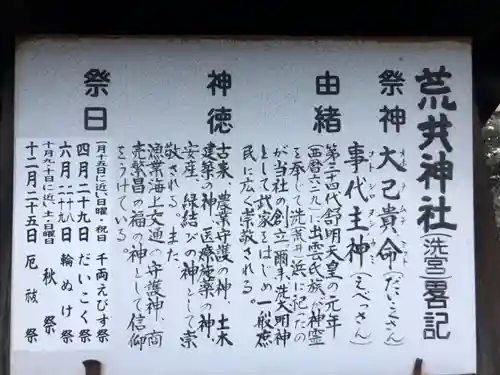 荒井神社(洗宮)畧記
祭神
大己貴命(だいこくさん)
オホナムチノミコト
事代主神(えべっさん)
コトシロヌシノカミ
由緒
第三十四代舒明天皇の元年
(西暦六二九)に出雲氏族が神霊
を奉じて洗荒井浜に祀ったの
が当社の創立、爾来、洗大明神
として武家をはじめ一般庶
民に広く崇敬される
神徳
古来、農業守護の神、土木
建築の神、医療施薬の神、
安産、縁結びの神として崇
敬される。また、
漁業海上交通の守護神、商
売繁昌の福の神として信仰
をうけている。
祭日
一月十五日に近い日曜・祝日 千両えびす祭
四月二十九日 だいこく祭
六月二十九日 輪ぬけ祭
十月九・十日に近い土・日曜日 秋祭
十二月二十五日 厄祓祭